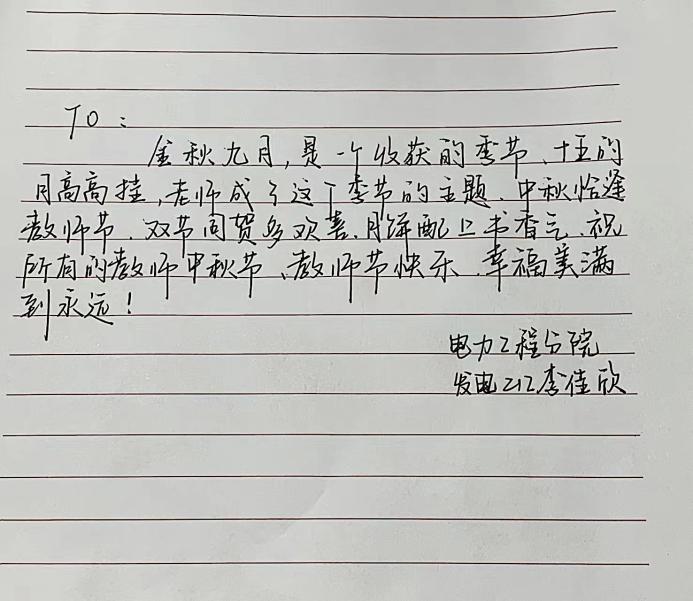 TO：
金秋九月，是一个收获的季节、十五的
月高高挂，老师成了这个季节的主题、中秋恰逢
教师节、双节同贺多欢喜、月饼配上书香气、祝
所有的教师中秋节、教师节快乐、幸福美满
到永远！
电力工程分院
发电212李佳欣